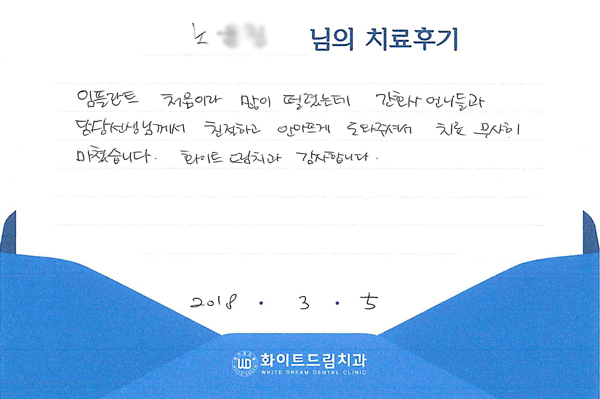 노 님의 치료후기
임플란트 처음이라 많이 떨렸는데 간호사 언니들과
담당선생님께서 친절하고 안아프게 도와주셔서 치료 무사히
마쳤습니다. 화이트드림치과 감사합니다.
2018 . 3 . 5
WD 화이트드림치과
WHITE DREAM DENTAL CLINIC